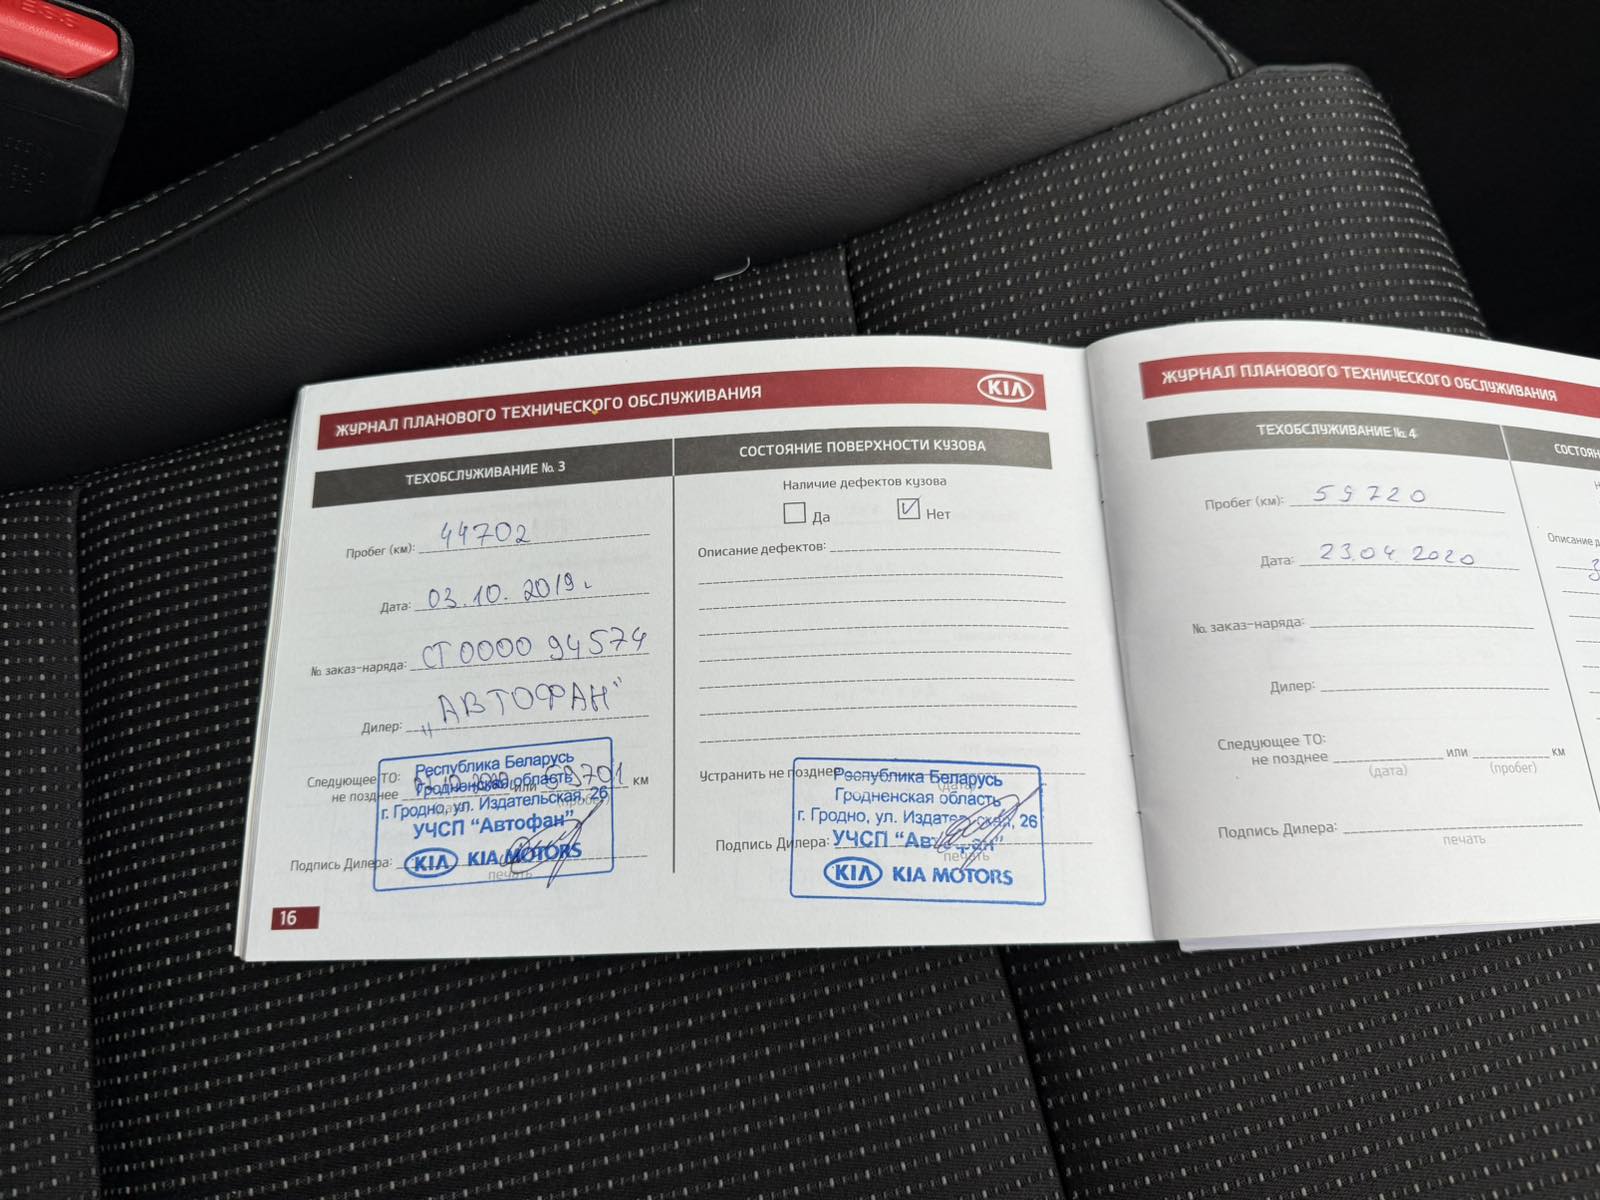 ЖУРНАЛ ПЛАНОВОГО ТЕХНИЧЕСКОГО ОБСЛУЖИВАНИЯ
KIA
ТЕХОБСЛУЖИВАНИЕ №. 3
СОСТОЯНИЕ ПОВЕРХНОСТИ КУЗОВА
Пробег (км): 44702
Дата: 03.10.2019г.
№ заказ-наряда: СТ0000 94574
Дилер: „АВТОФАН"
Следующее ТО:
не позднее или 59701 км
Подпись Дилера:
печать
Республика Беларусь
Гродненская область
г. Гродно, ул. Издательская, 26
УЧСП "Автофан"
KIA KIA MOTORS
16
Наличие дефектов кузова
Да Нет
Описание дефектов:
Устранить не позднее
(дата)
Подпись Дилера:
печать
Республика Беларусь
Гродненская область
г. Гродно, ул. Издательская, 26
УЧСП "Автофан"
KIA KIA MOTORS
ЖУРНАЛ ПЛАНОВОГО ТЕХНИЧЕСКОГО ОБСЛУЖИВАНИЯ
ТЕХОБСЛУЖИВАНИЕ №. 4
Пробег (км): 59720
Дата: 23.04.2020
№. заказ-наряда:
Дилер:
Следующее ТО:
не позднее или км
(дата) (пробег)
Подпись Дилера:
печать
СОСТОЯН
Описание д